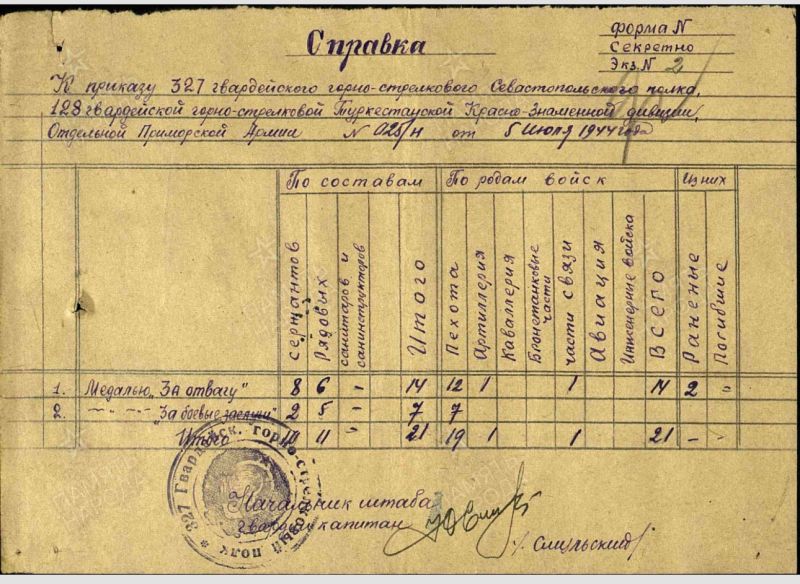 форма N
Секретно
Экз. N 2
Справка
К приказу 327 гвардейского горно-стрелкового Севастопольского полка,
128 гвардейской горно-стрелковой Туркестанской Красно-Знаменной дивизии,
Отдельной Приморской Армии N 025/н от 5 Июля 1944 года
По составам По родам войск Из них
сержантов Рядовых санитаров и санинструкторов Итого Пехота Артиллерия Каваллерия Бронетанковые части части связи Авиация Инженерные войска Всего Раненые Погибшие
1. Медалью „За отвагу" 8 6 - 14 12 1 1 14 2 -
2. -"- -"- „За боевые заслуги" 2 5 - 7 7
Итого 10 11 - 21 19 1 1 21 - -
327 Гвардейск. горно-стрелковый полк
Начальник штаба
гвардии капитан
/Смульский/